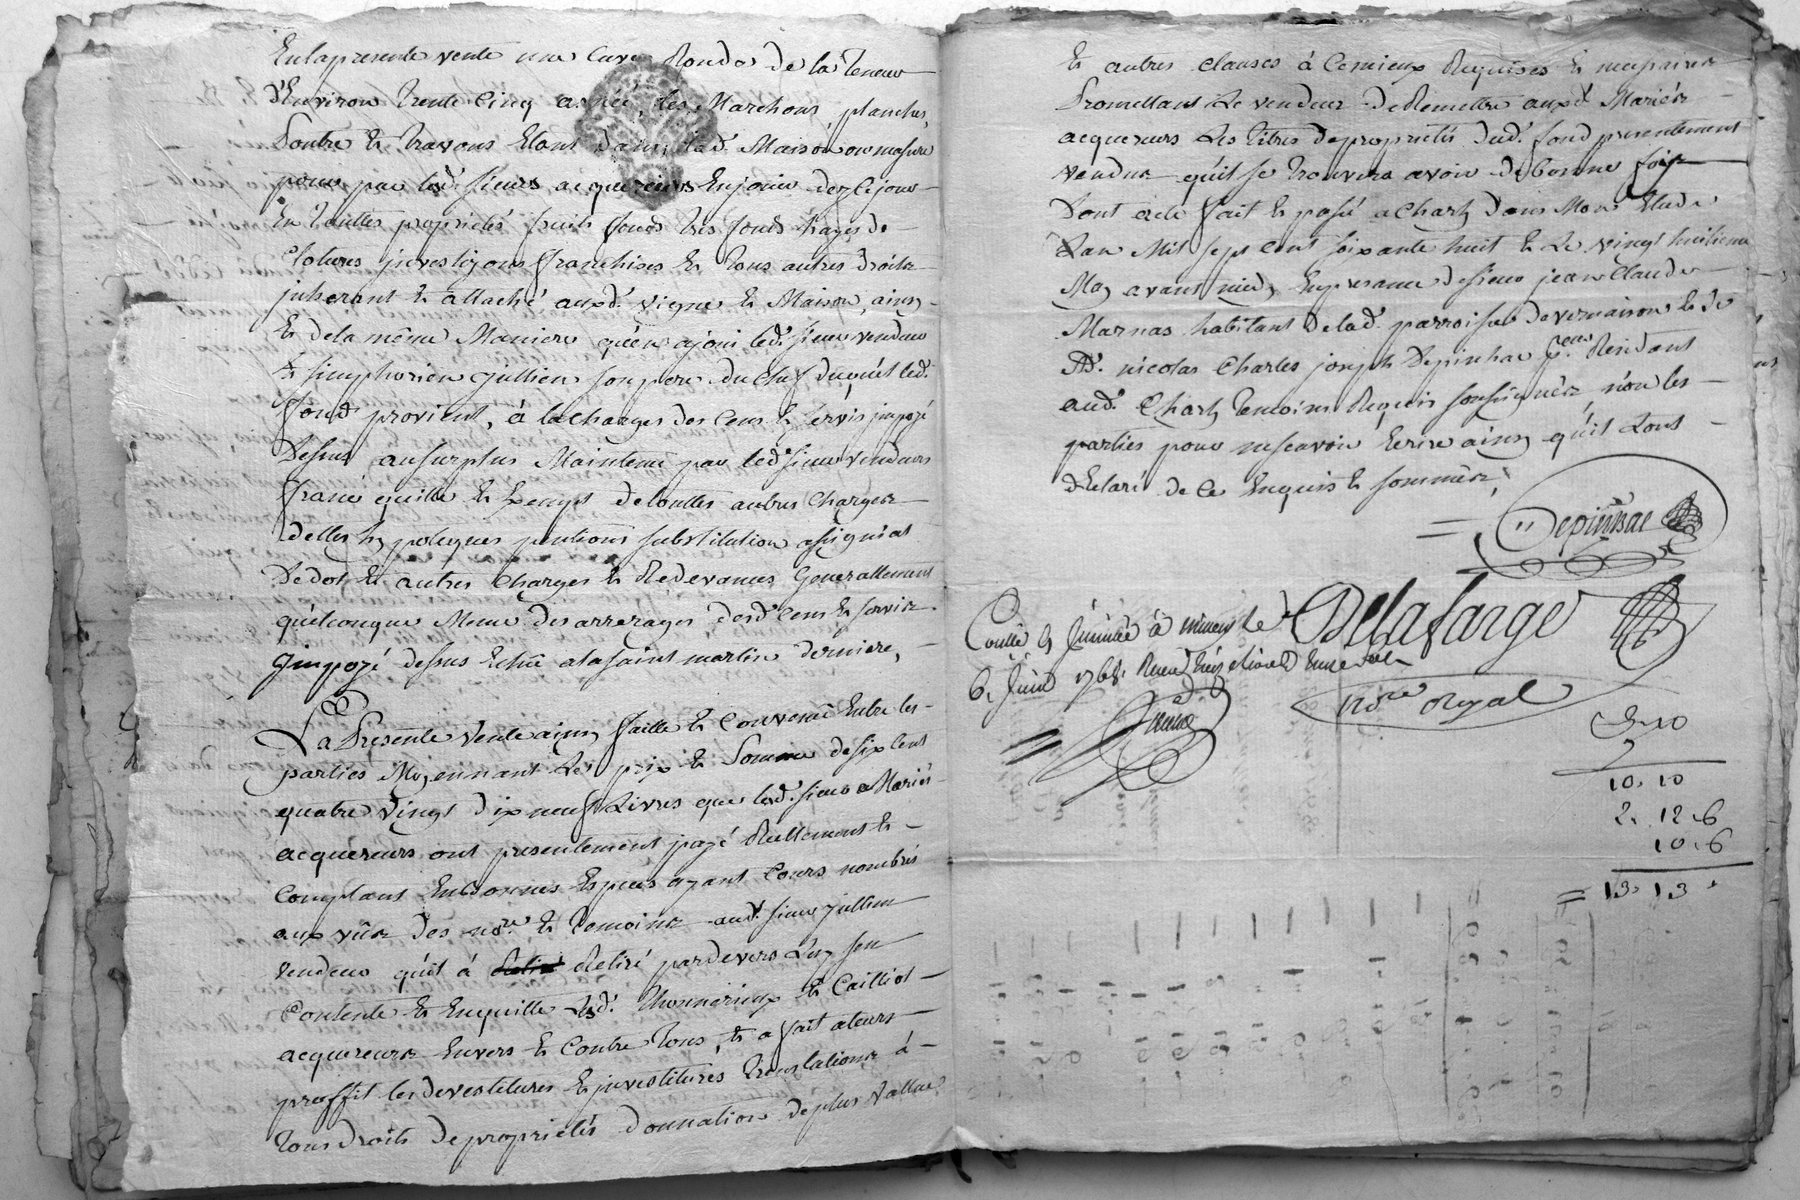 En la presente vente une Cuve Ronde de la teneur
d'Environ trente Cinq asnée, les Marchons, planches,
Poutre & travons Etant dans lad. Maison ou masure
pour par lesd. sieurs acquereurs En jouir dez Ce jour
En touttes proprietés fruits fonds tres fonds hayes de
Clotures investizons franchises & tous autres droits
inherant & attaché auxd. vigne & Maison, ainsy
& de la même Maniere qu'en a joui led. sieur vendeur
& simphorien jullien son pere du chef duquel led.
fond provient, à la charges des Cens & servis impozé
Dessus au surplus Maintenu par led. sieur vendeur
franc quitte & Exempt de touttes autres Charges
dettes hypoteques pentions substitution assignat
De dot & autres Charges & Redevances Generallement
quelconque Meme des arrerages desd. Cens & servis
Jmpozé dessus Echu a la saint martin derniere,
La Presente Vente ainsy faitte & Convenue Entre les
parties Moyennant Le prix & Somme de six Cent
quatre vingt dix neuf Livres que lesd. sieur Mariés
acquereurs ont presentement payé Reellement &
Comptant En bonnes Especes ayant Cours nombrés
aux vûes des no.re & temoins aud. sieur jullien
Vendeur qu'il à Retiré pardevers Luy s'en
Contente & En quitte lesd. & Cailliot
acquereurs Envers & Contre tous, & a fait a leurs
proffit les devestitures & investitures translations à
tous droits de proprietés donnation de plus vallue
& autres clauses à Ce mieux Requises & necessaires
Promettant Le vendeur de Remettre auxd. Mariés
acquereurs Les titres de proprietés dud. fond presentement
vendu qu'il se trouvera avoir de bonne foix
Dont acte fait & passé a Charly dans Mon Etude
L'an Mil sept Cent soixante huit & Le vingt huitieme
May avant midy En presence de sieur jean Claude
Marnas habitant de lad. parroisse de vernaison & de
Nicolas Charles joseph Depinhac Residant
aud. Charly temoins Requis soussignés, non les
parties pour ne scavoir Ecrire ainsy qu'il L'ont
déclaré de Ce Enquis & sommés,
Depinhac
Delafarge
no.re Royal
6. juin 1768.
10. 10
2. 12. 6
10. 6
= 13. 13.